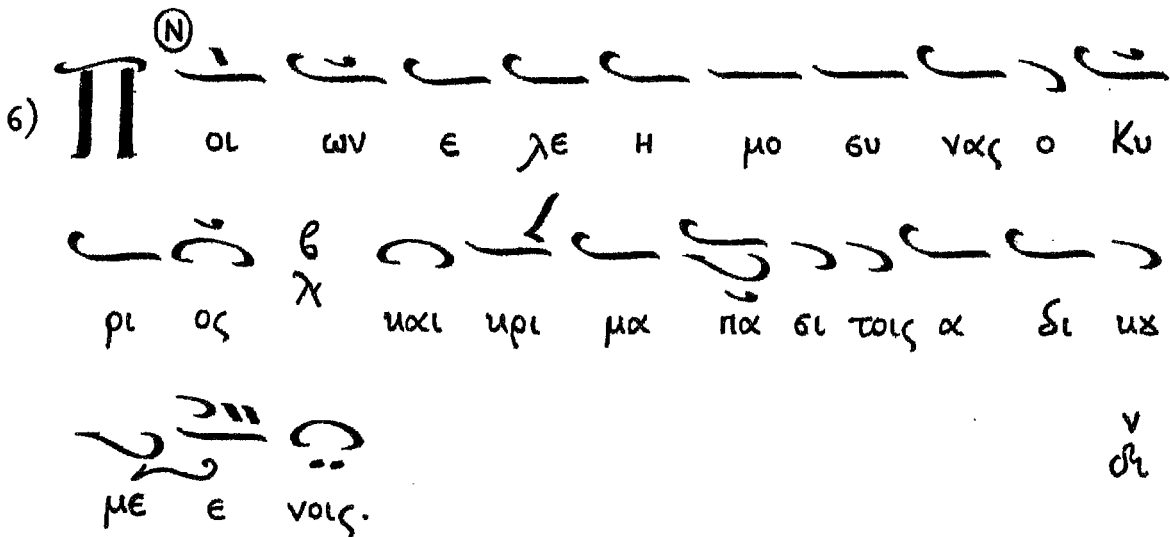 6) Π Ⓝ οι ων ε λε η μο συ νας ο Κυ
ρι ος β λ και κρι μα πα σι τοις α δι κȣ
με ε νοις. ν δι